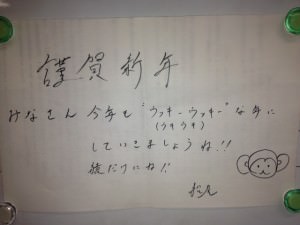 謹賀新年
みなさん 今年も"ウッキーウッキー"な年に
(ウキウキ)
していきましょうね!!
猿だけにね!!